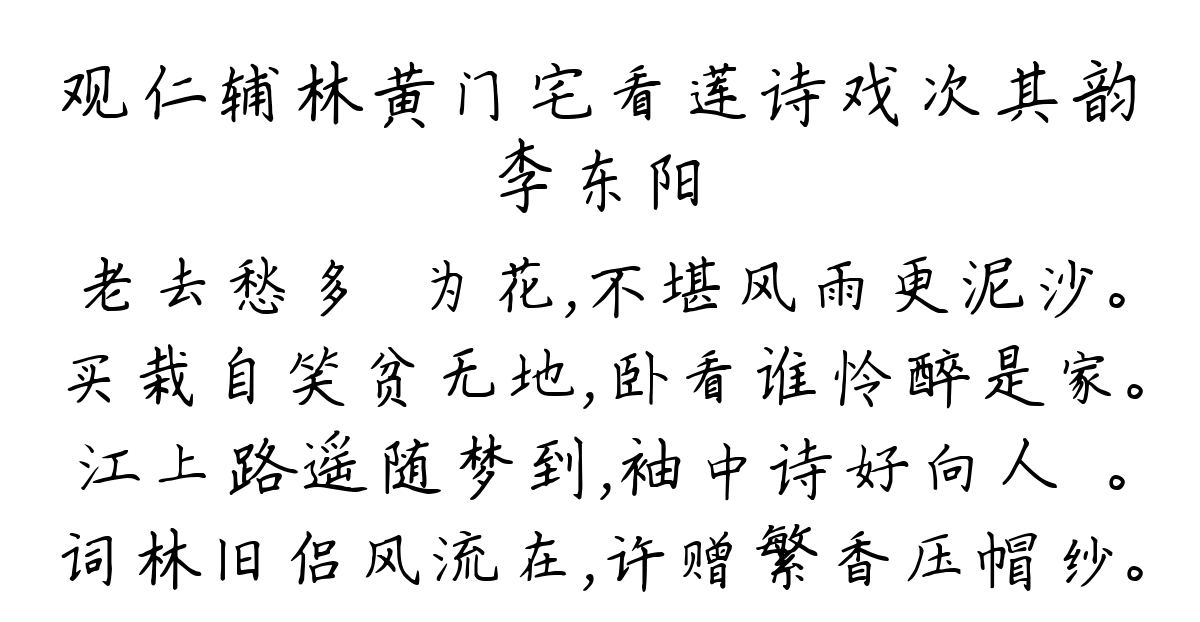 观仁辅林黄门宅看莲诗戏次其韵
李东阳
老去愁多 为花,不堪风雨更泥沙。
买栽自笑贫无地,卧看谁怜醉是家。
江上路遥随梦到,袖中诗好向人 。
词林旧侣风流在,许赠繁香压帽纱。